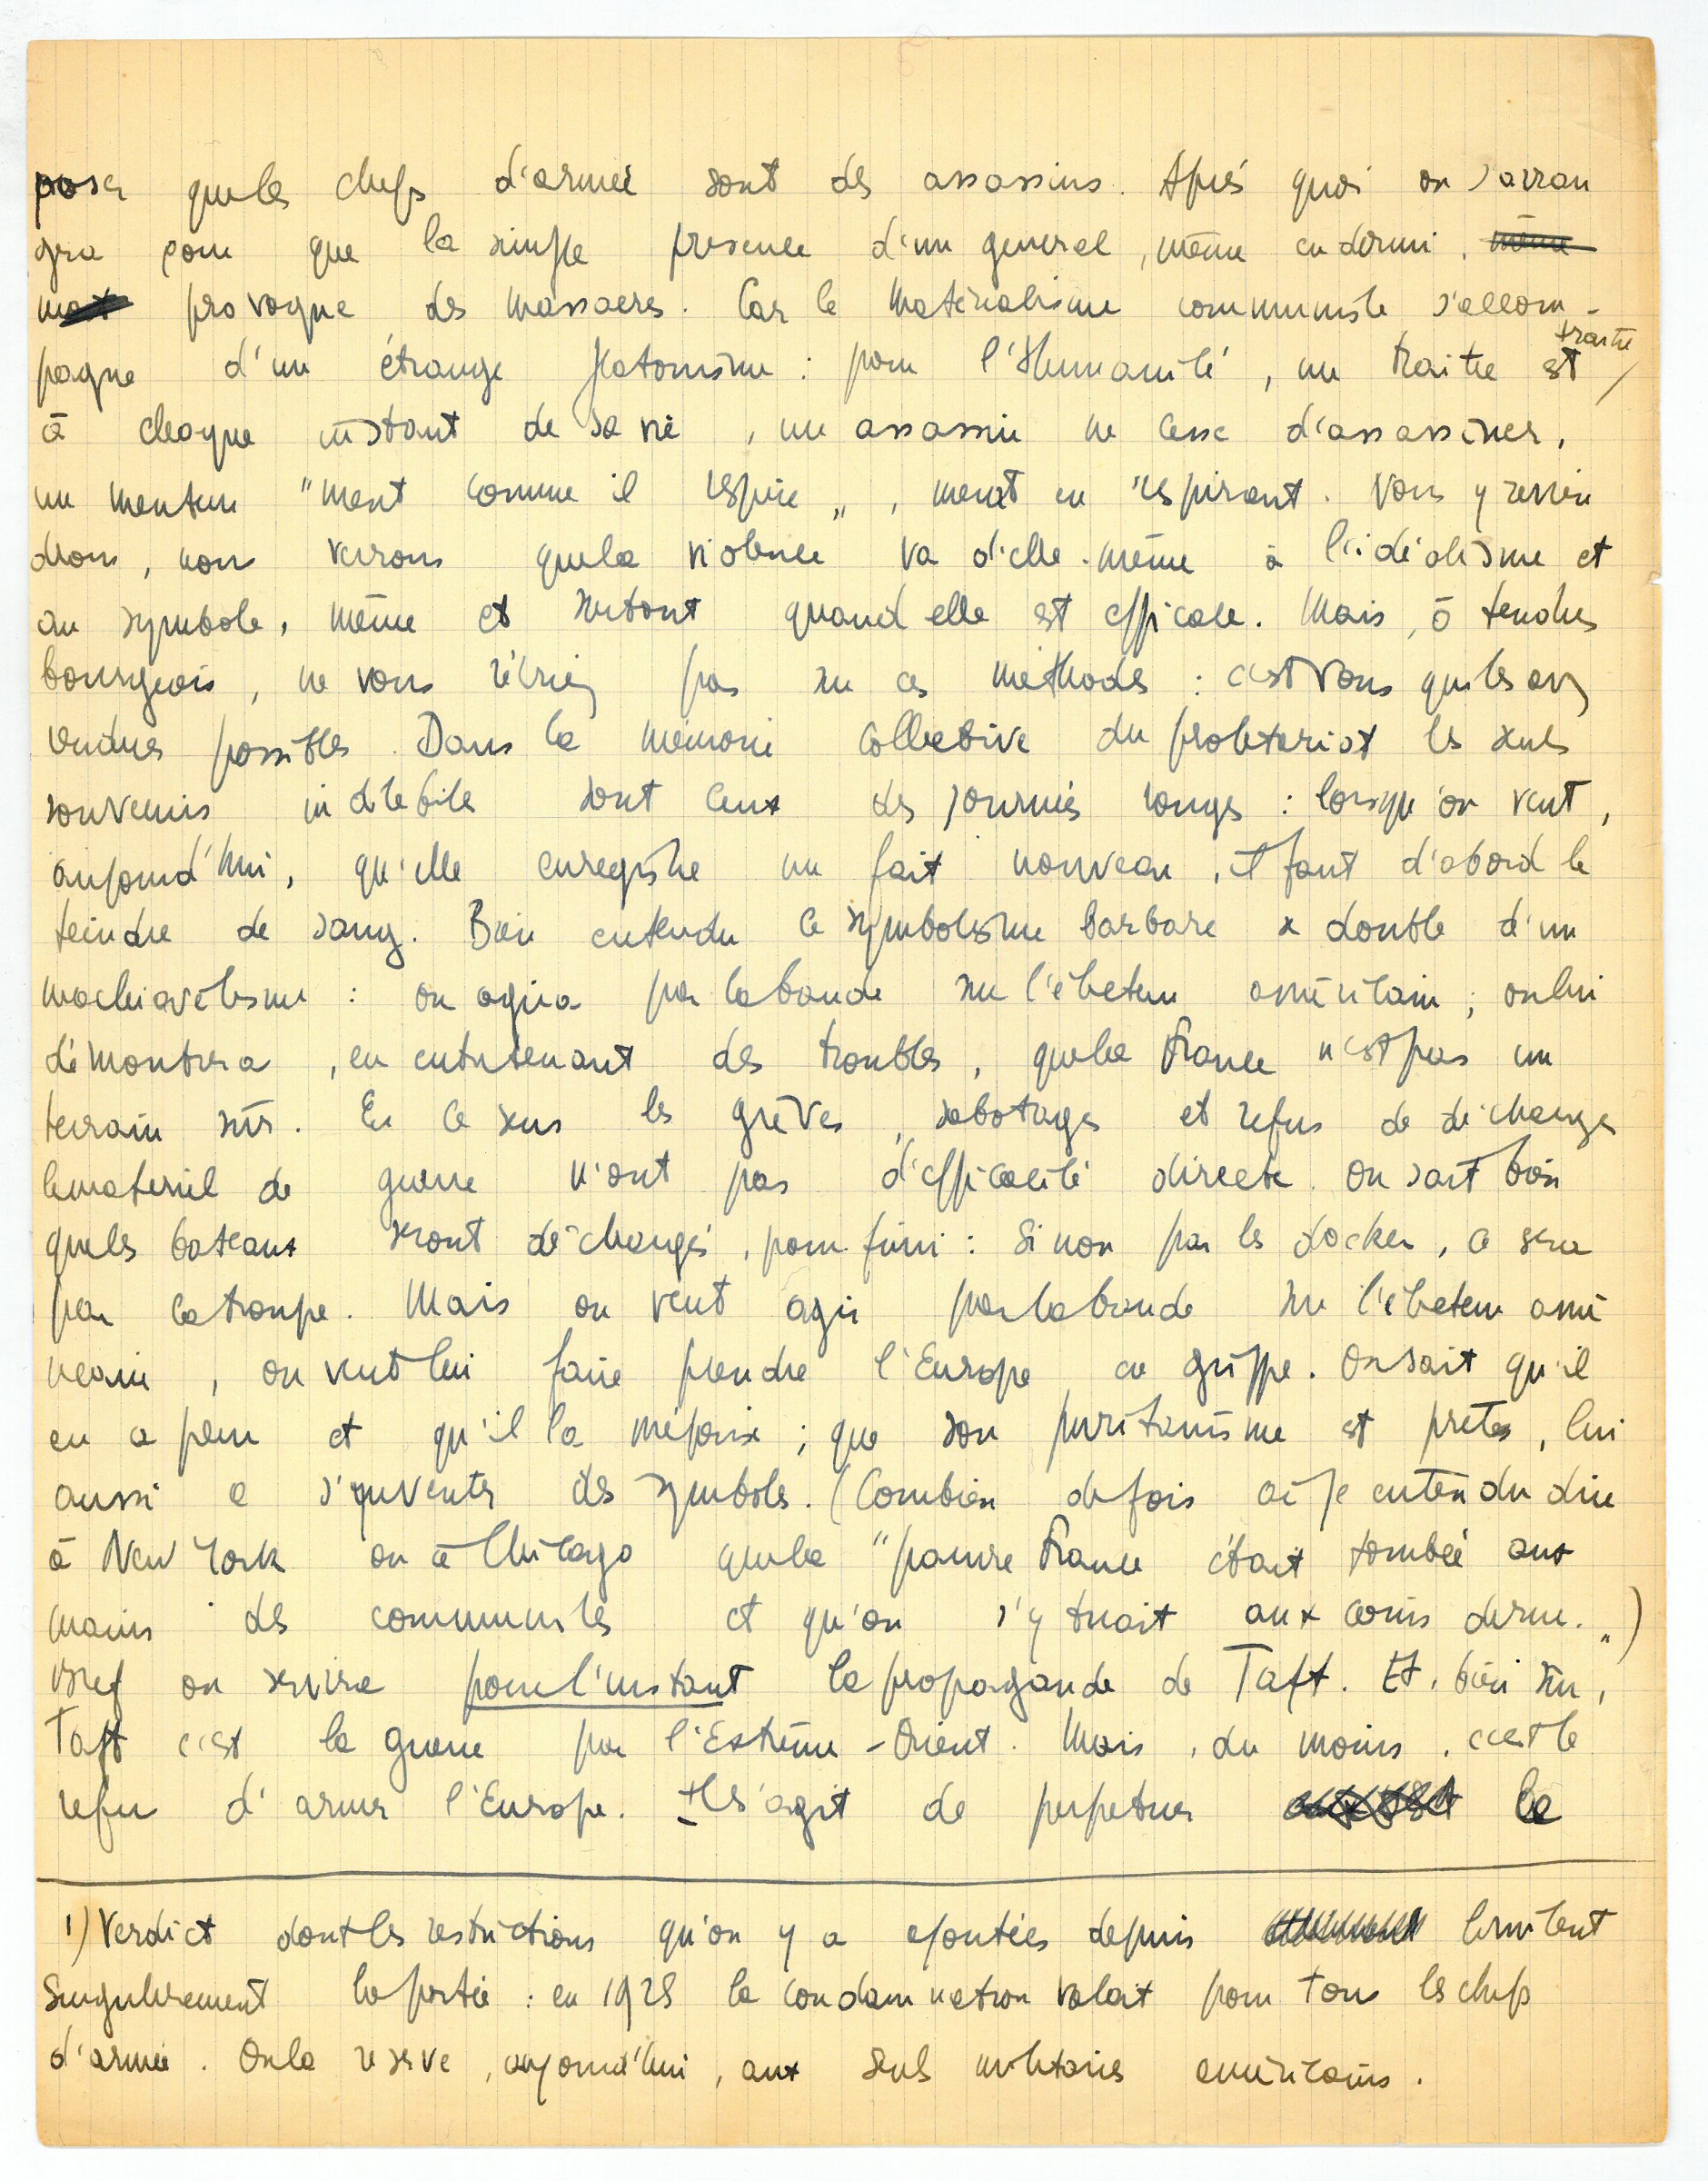 poser que les chefs d'armée sont des assassins. Après quoi on s'arran
gera pour que la simple présence d'un général, même endormi, même
mort provoque des massacres. Car le matérialisme communiste s'accom-
pagne d'un étrange platonisme : pour l'Humanité, un traître est traître
à chaque instant de sa vie, un assassin ne cesse d'assassiner,
un menteur "ment comme il respire", ment en respirant. Nous y revien
drons, nous verrons que la violence va d'elle-même à l'idéalisme et
au symbole, même et surtout quand elle est efficace. Mais, ô tendres
bourgeois, ne vous récriez pas sur ces méthodes : c'est vous qui les avez
rendues possibles. Dans la mémoire collective du prolétariat les seuls
souvenirs indélébiles sont ceux des journées rouges : lorsqu'on veut,
aujourd'hui, qu'elle enregistre un fait nouveau, il faut d'abord le
teindre de sang. Bien entendu ce symbolisme barbare se double d'un
machiavélisme : on agira par la bande sur l'électeur américain ; on lui
démontrera, en entretenant des troubles, que la France n'est pas un
terrain sûr. En ce sens les grèves, sabotages et refus de décharger
le matériel de guerre n'ont pas d'efficacité directe. On sait bien
que les bateaux seront déchargés, pour finir : si non par les dockers, ce sera
par la troupe. Mais on veut agir par la bande sur l'électeur amé
ricain, on veut lui faire prendre l'Europe en grippe. On sait qu'il
en a peur et qu'il la méprise ; que son puritanisme est prêt, lui
aussi à s'inventer des symboles. (Combien de fois ai-je entendu dire
à New York ou à Chicago que la "pauvre France était tombée aux
mains des communistes et qu'on s'y tuait aux coins des rues.")
Bref on servira pour l'instant la propagande de Taft. Et, bien sûr,
Taft c'est la guerre par l'Extrême-Orient. Mais, du moins, c'est le
refus d'armer l'Europe. Il s'agit de perpétuer la
1) Verdict dont les restrictions qu'on y a ajoutées depuis limitent
Singulièrement la portée : en 1928 la condamnation valait pour tous les chefs
d'armée. On la réserve, aujourd'hui, aux seuls militaires américains.